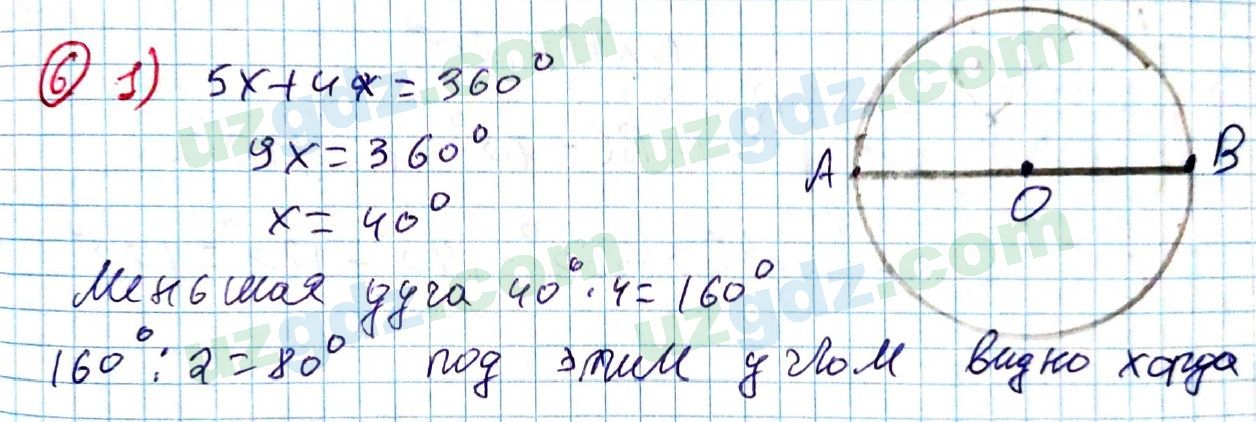 6 1) 5x+4x=360°
9x=360°
x=40°
A B
O
Меньшая дуга 40°·4=160°
160°:2=80° под этим углом видно хорда
uzgdz.com
uzgdz.com
uzgdz.com
uzgdz.com